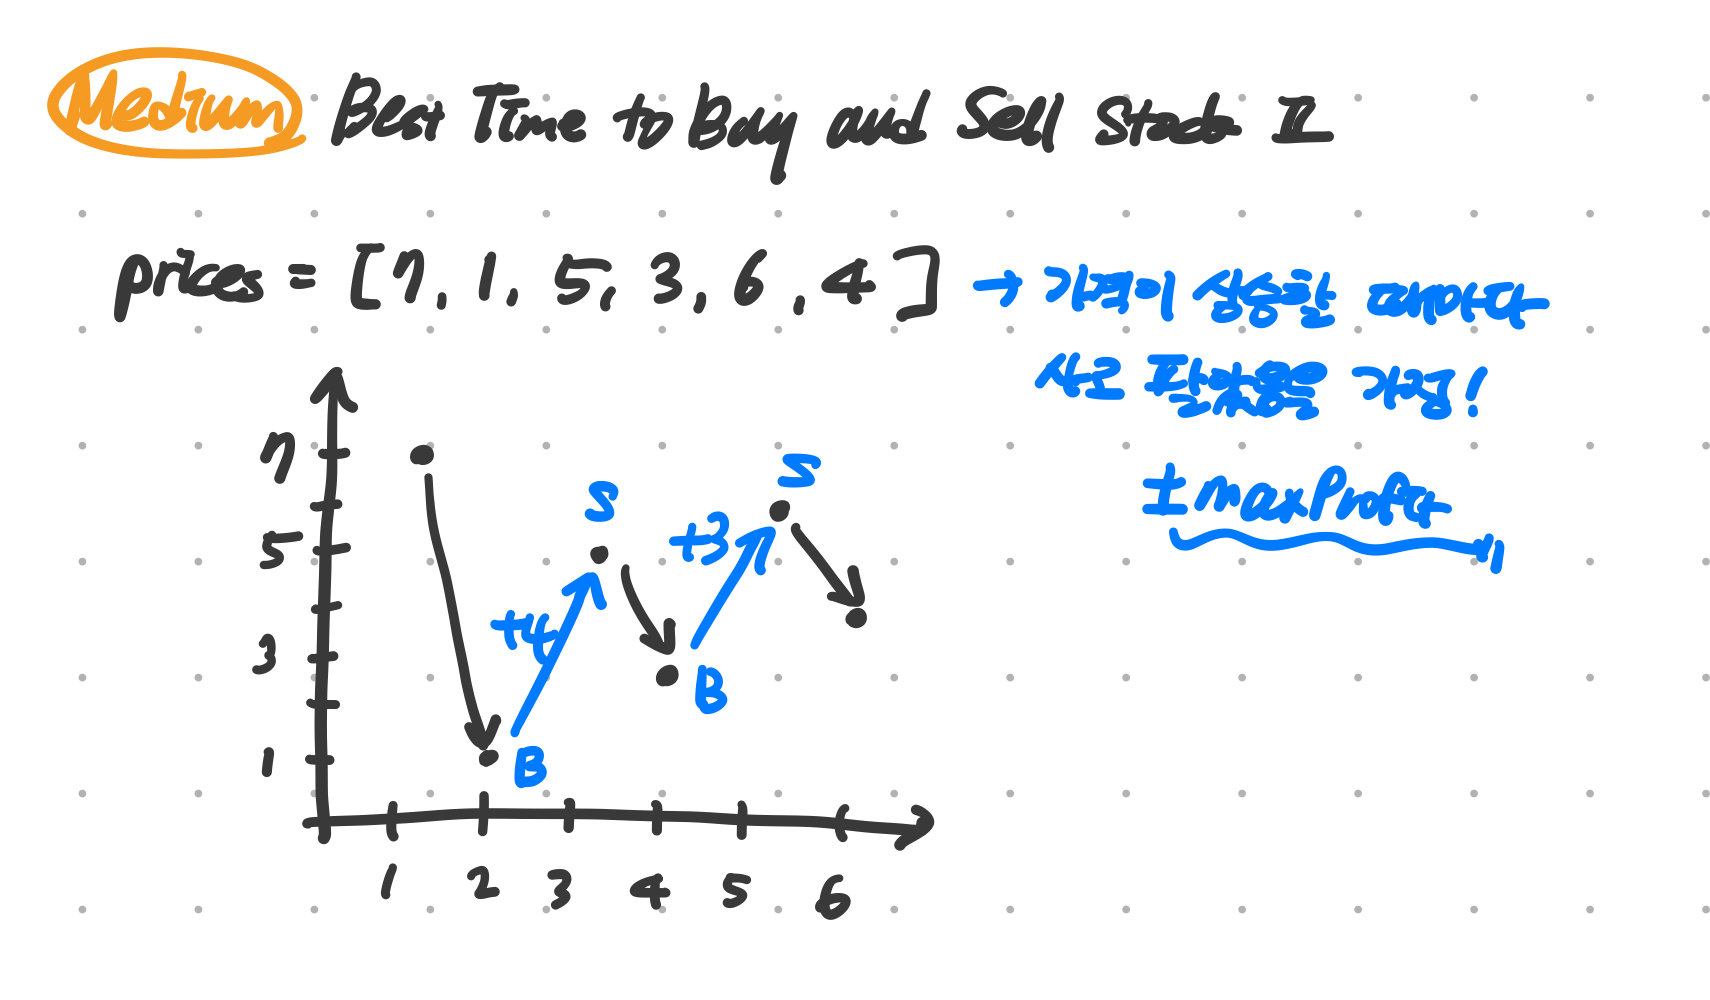 Medium Best Time to Buy and Sell Stock II
prices = [7, 1, 5, 3, 6, 4] → 가격이 상승할 때마다
사고 팔았음을 가정!
± maxProfit
7
5
3
1
S
S
+4
+3
B
B
1 2 3 4 5 6